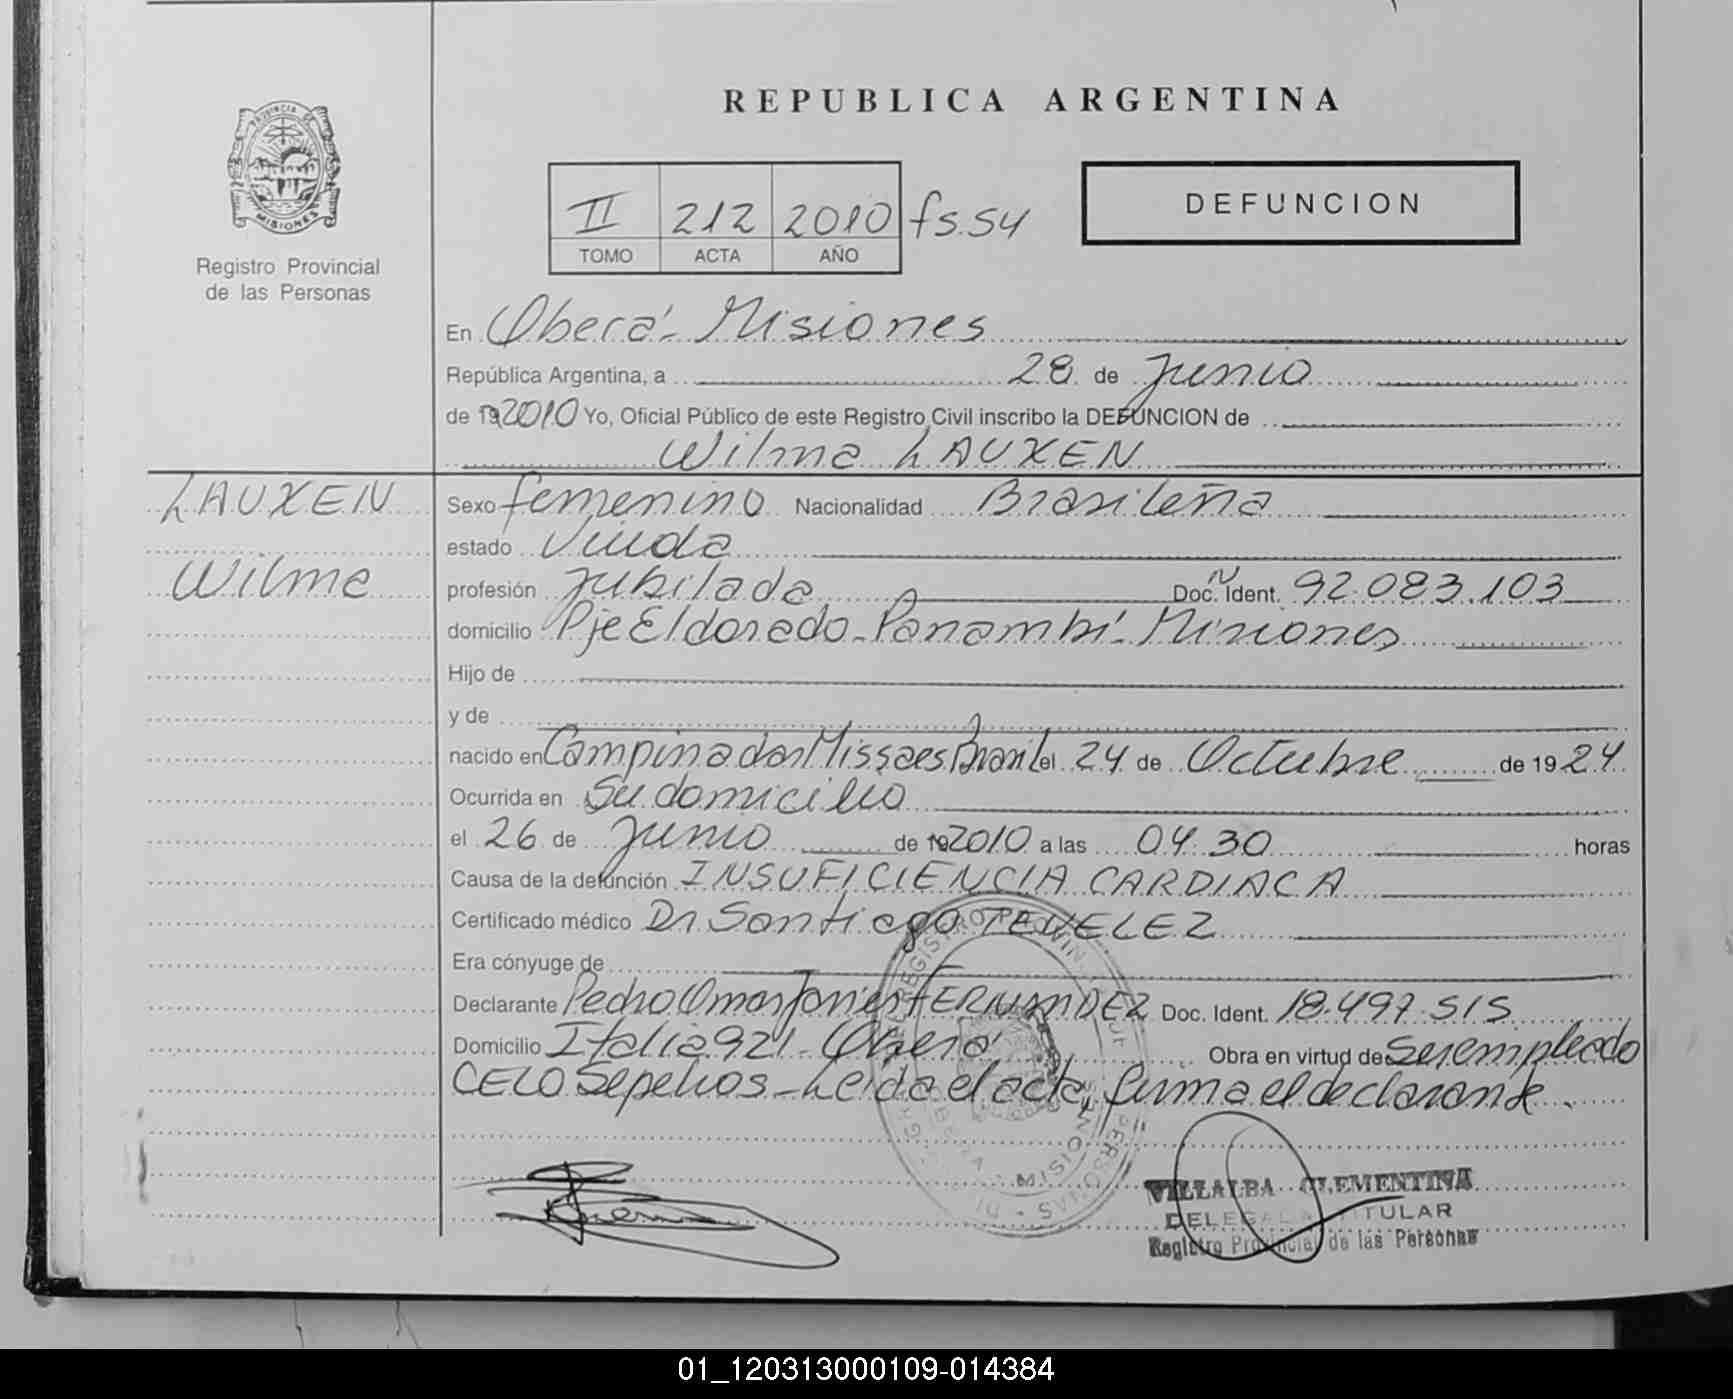 REPUBLICA ARGENTINA
PROVINCIA DE
MISIONES
Registro Provincial
de las Personas
II 212 2010 fs. 54
TOMO ACTA AÑO
DEFUNCION
En Oberá - Misiones
República Argentina, a 28 de Junio
de 19 2010 Yo, Oficial Público de este Registro Civil inscribo la DEFUNCION de
Wilma LAUXEN
LAUXEN
Wilma
Sexo femenino Nacionalidad Brasileña
estado Viuda
profesión Jubilada Doc. Ident. Nº 92.083.103
domicilio Pje Eldorado - Panambí - Misiones
Hijo de
y de
nacido en Campina das Missoes Brasil el 24 de Octubre de 1924
Ocurrida en Su domicilio
el 26 de Junio de 19 2010 a las 04.30 horas
Causa de la defunción INSUFICIENCIA CARDIACA
Certificado médico Dr Santiago
Era cónyuge de
Declarante Pedro Omar Javier FERNANDEZ Doc. Ident. 18.497.515
Domicilio Italia 921 - Oberá Obra en virtud de Ser empleado
CELO Sepelios - Leida el acta, firma el declarante.
MISIONES
VILLALBA CLEMENTINA
DELEGADA TITULAR
Registro Provincial de las Personas
01_120313000109-014384